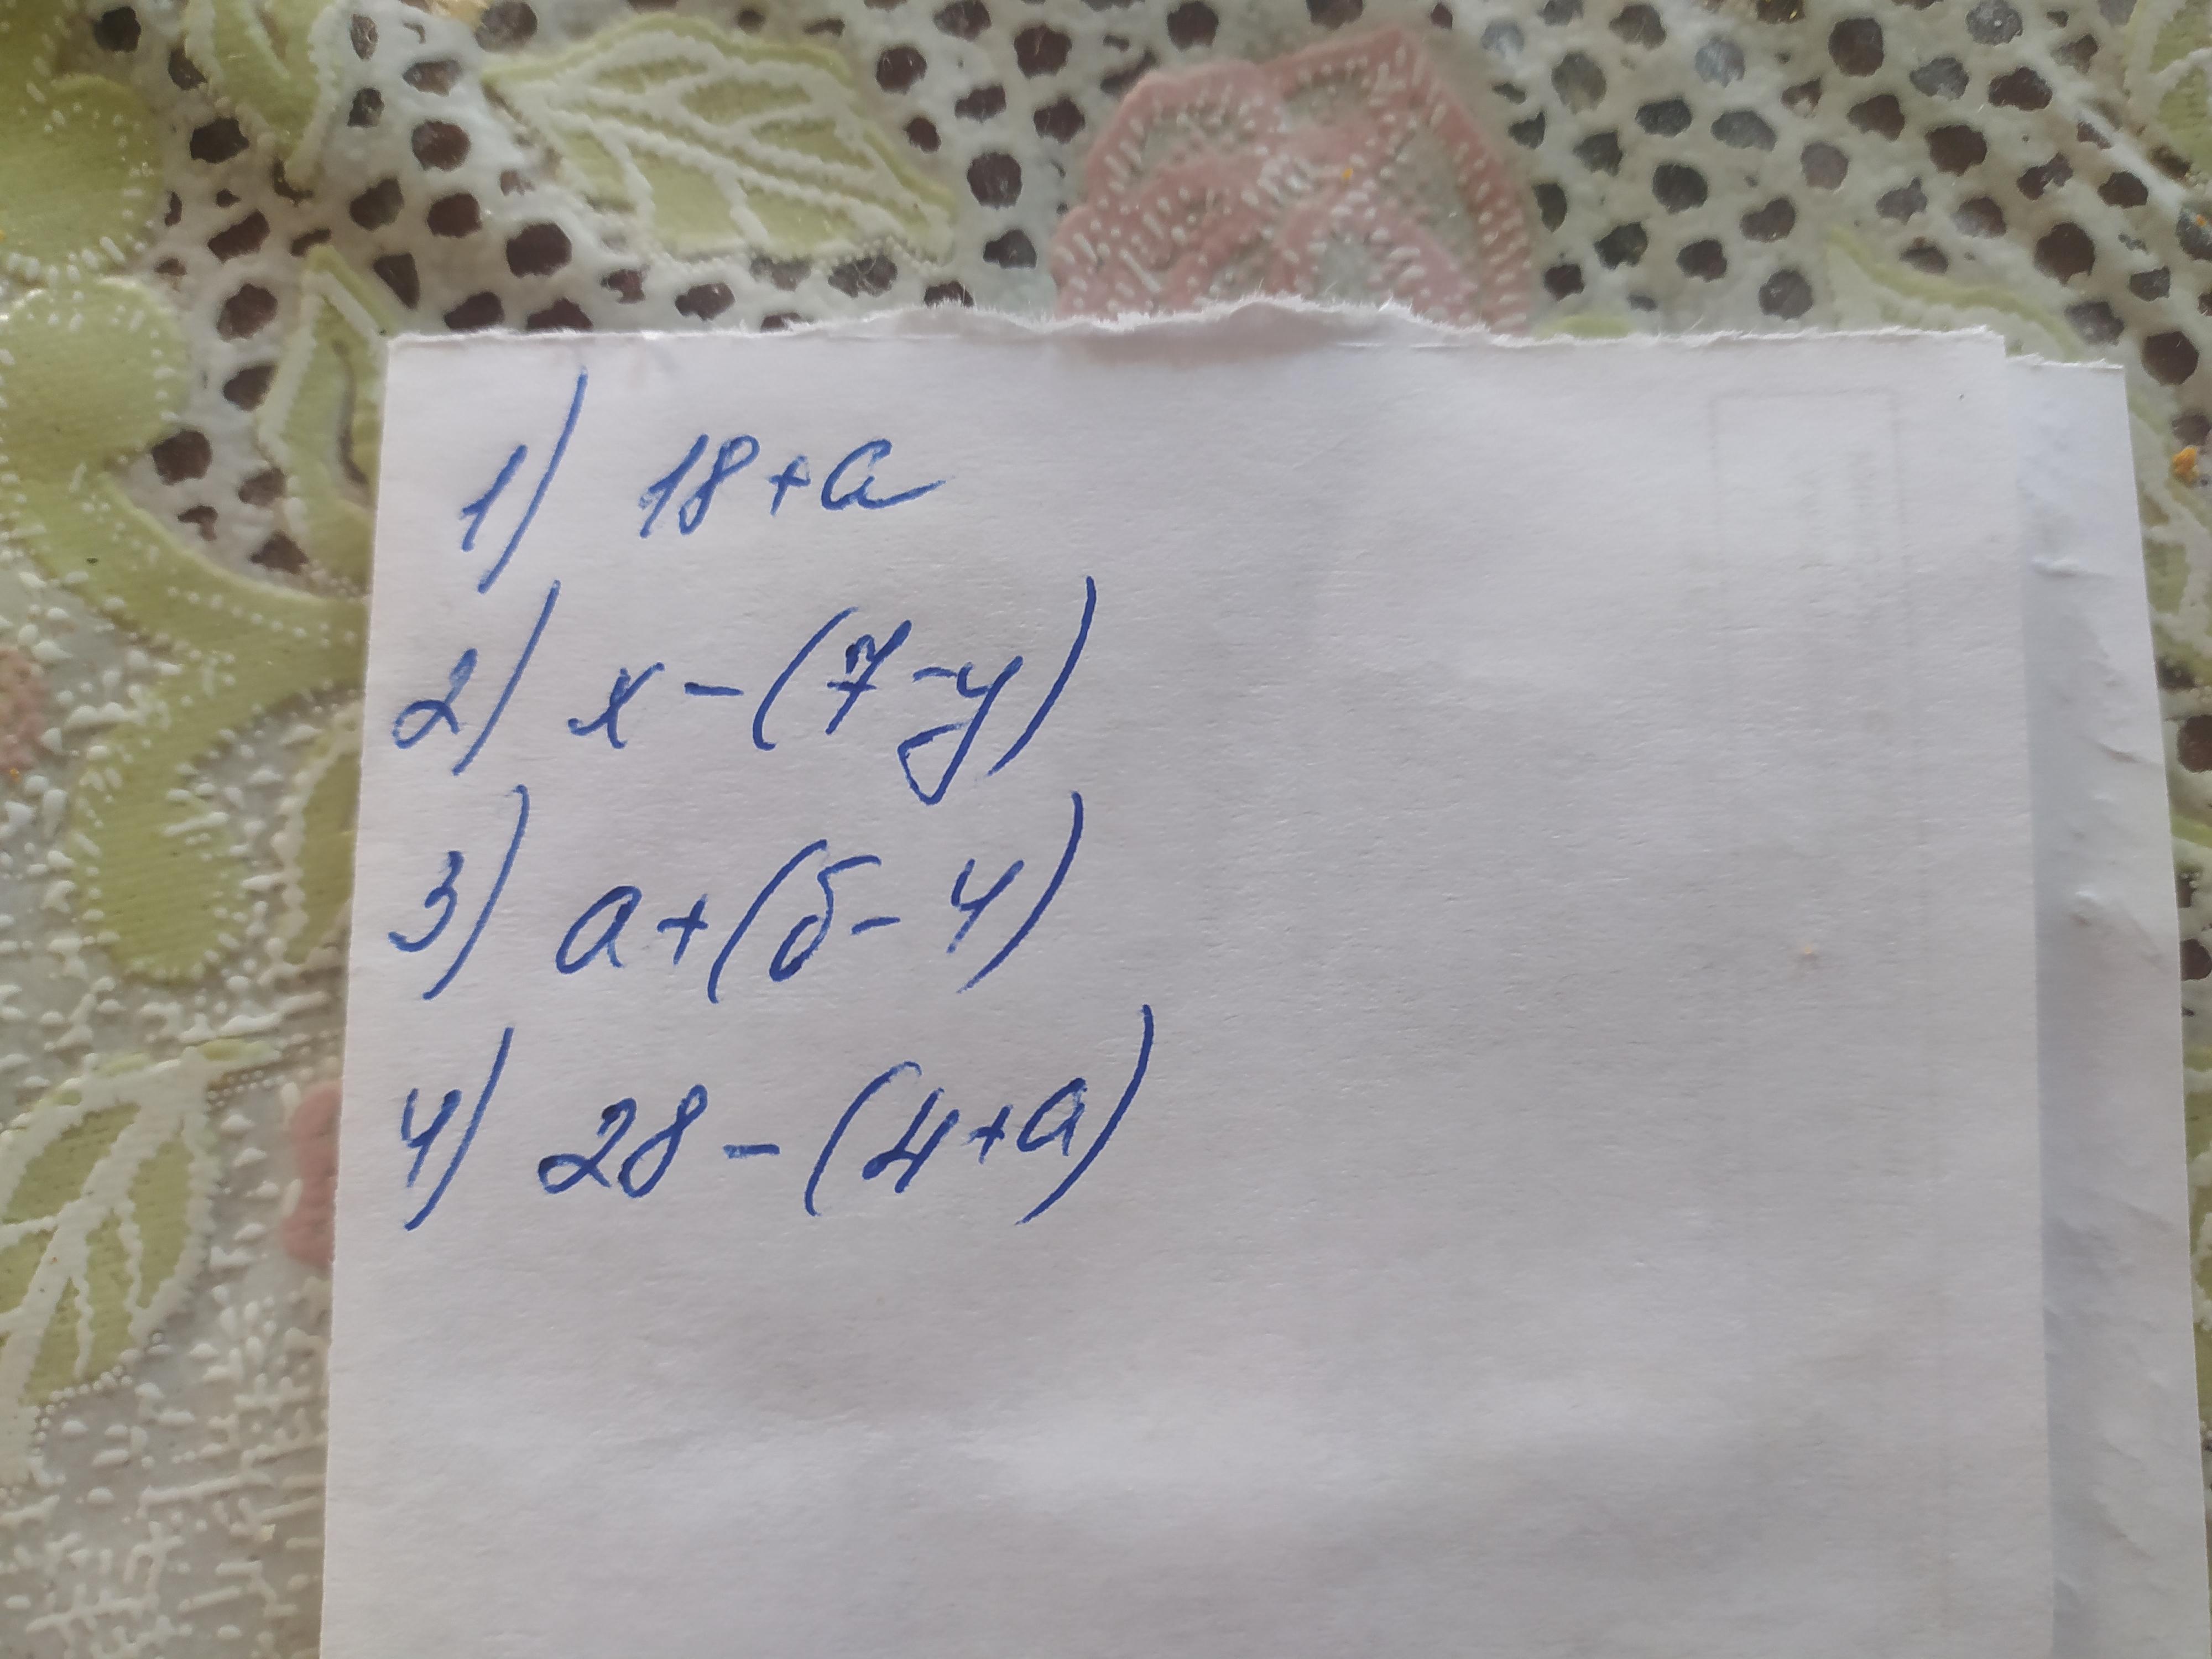 1) 18+а
2) х-(7-у)
3) а+(б-4)
4) 28-(4+а)